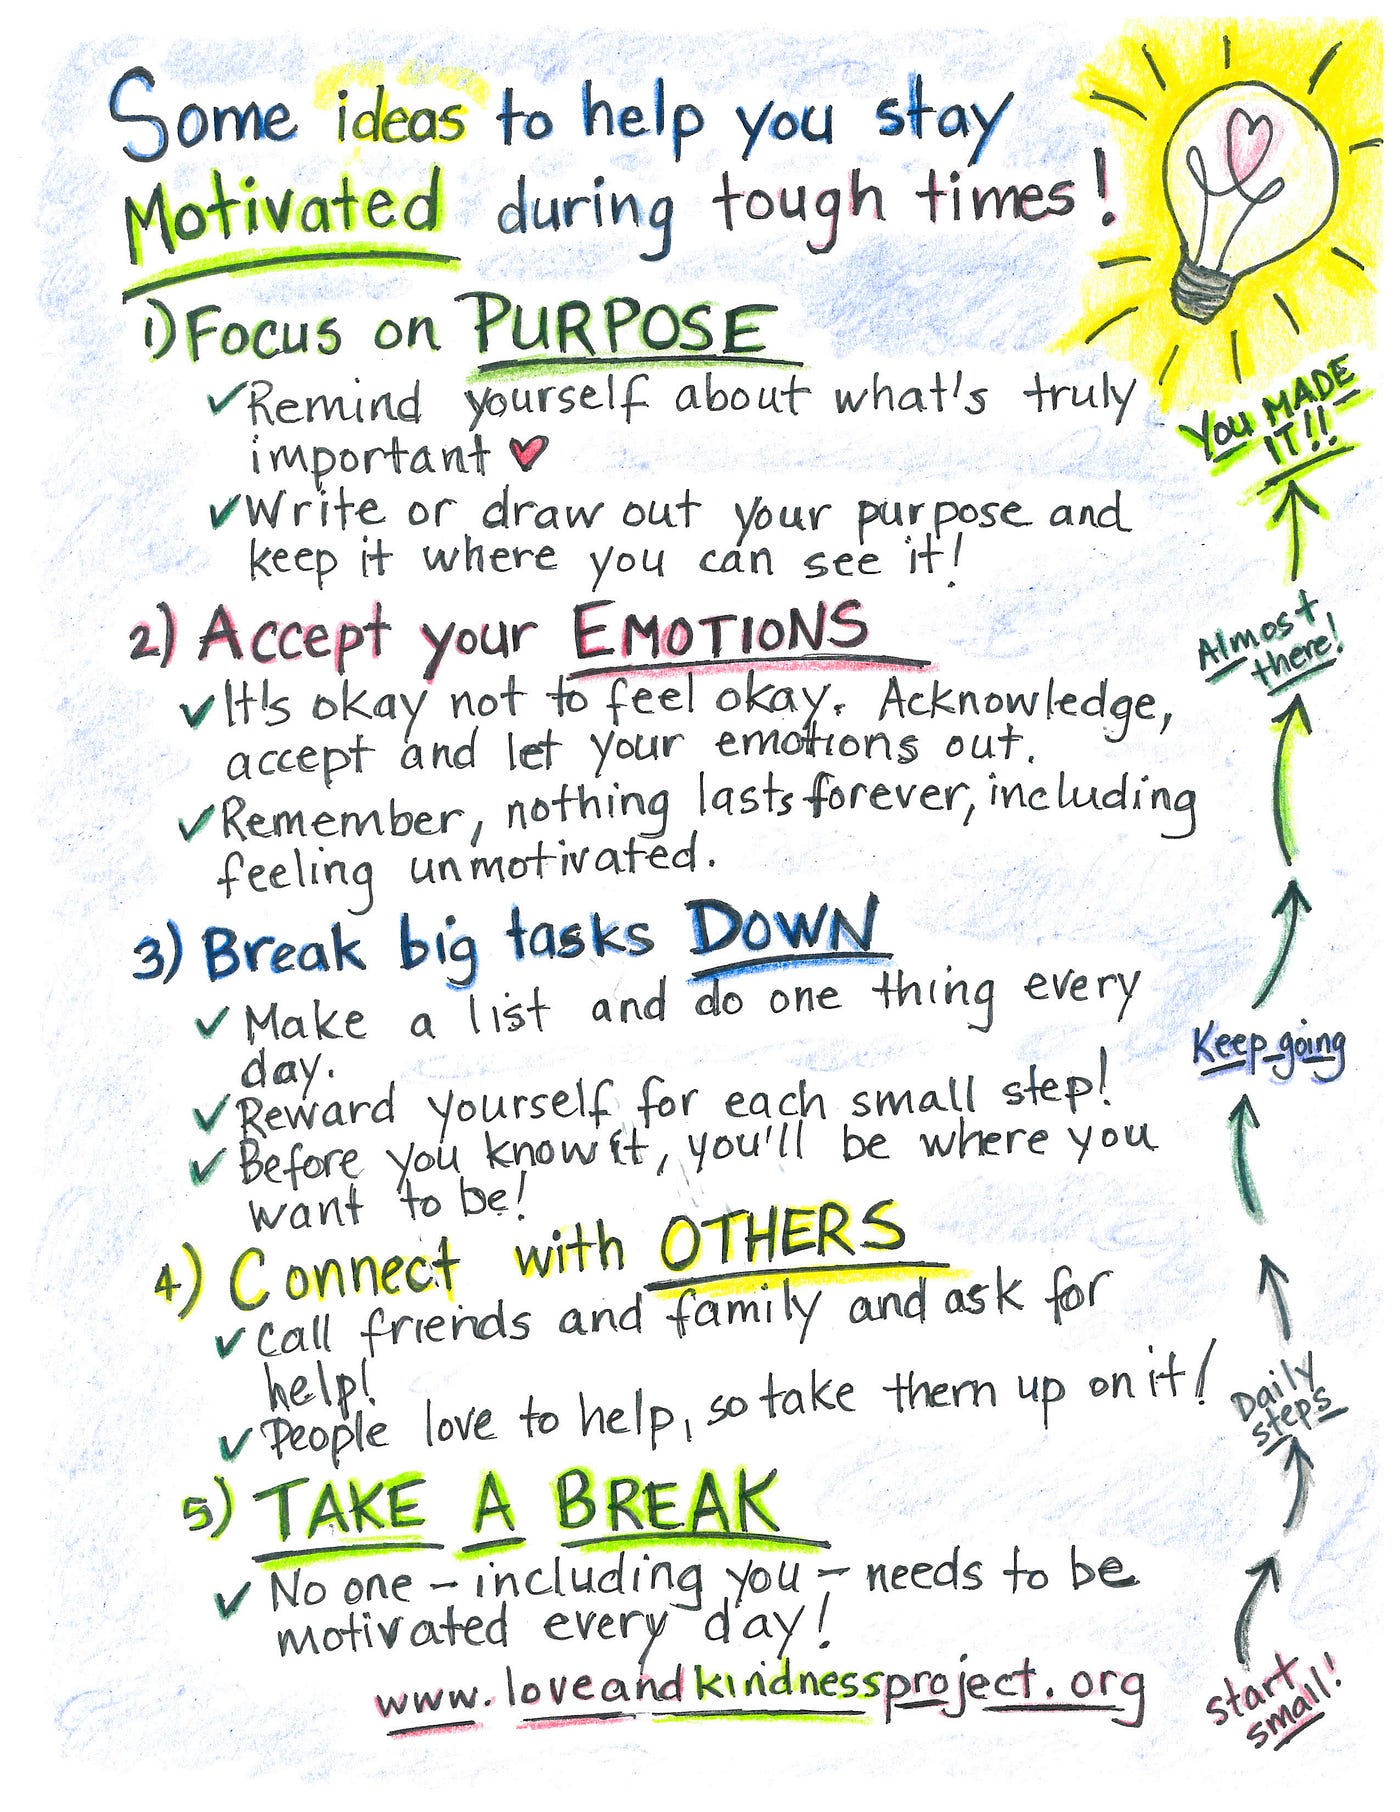 Some ideas to help you stay
Motivated during tough times!
1) Focus on PURPOSE
✓Remind yourself about what's truly
important ♥
✓Write or draw out your purpose and
keep it where you can see it!
2) Accept your EMOTIONS
✓It's okay not to feel okay. Acknowledge,
accept and let your emotions out.
✓Remember, nothing lasts forever, including
feeling unmotivated.
3) Break big tasks DOWN
✓Make a list and do one thing every
day.
✓Reward yourself for each small step!
✓Before you know it, you'll be where you
want to be!
4) Connect with OTHERS
✓Call friends and family and ask for
help!
✓People love to help, so take them up on it!
5) TAKE A BREAK
✓No one - including you - needs to be
motivated every day!
www.loveandkindnessproject.org
You MADE
IT!!
Almost
there!
Keep going
Daily
steps
start
small!